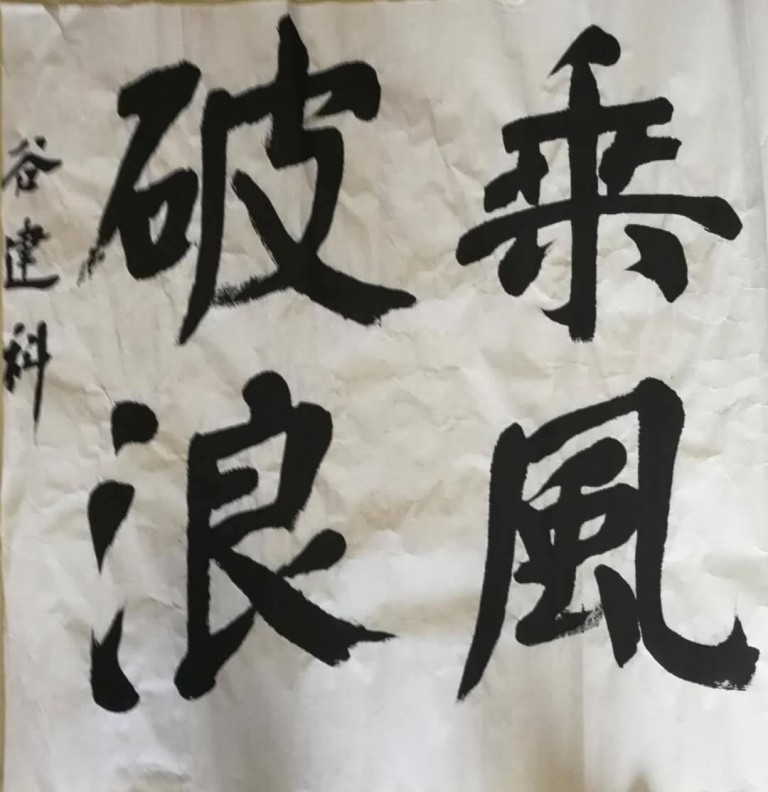 乘風
破浪
谷建科